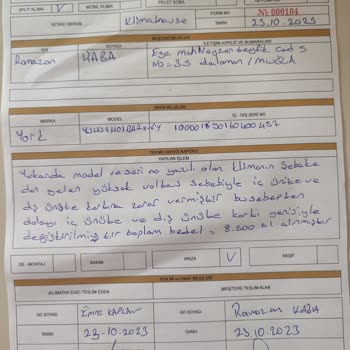 SPLİT KLİMA V MOBİL KLİMA
YETKİLİ SERVİS Klimahouse FORM NO № 000104
TARİH 23.10.2023
MÜŞTERİ BİLGİLERİ
ADI SOYADI İLETİŞİM ADRESİ VE NUMARALARI
Ramazan KABA Ege mah Cad S
NO = 3.S dalaman / MUĞLA
ÜRÜN BİLGİLERİ
MARKA MODEL İÇ - DIŞ SERİ NO
York
TEKNİK SERVİS RAPORU
YAPILAN İŞLEM
Yukarıda model ve seri no yazılı olan klimanın Şebeke
den gelen yüksek voltaj sebebiyle iç ünite ve
dış ünite kartına zarar vermiştir bu sebepten
dolayı iç ünite ve dış ünite kartı yenisiyle
değiştirilmiştir toplam bedel = 8.600 tl alınmıştır
DE - MONTAJ BAKIM ARIZA V KEŞİF
TESLİM VE ONAY BİLGİLERİ
(KLİMATAK EGE) TESLİM EDEN (MÜŞTERİ) TESLİM ALAN
AD SOYAD Emre KAPLAN AD SOYAD Ramazan KABA
TARİH 23-10-2023 TARİH 23.10.2023